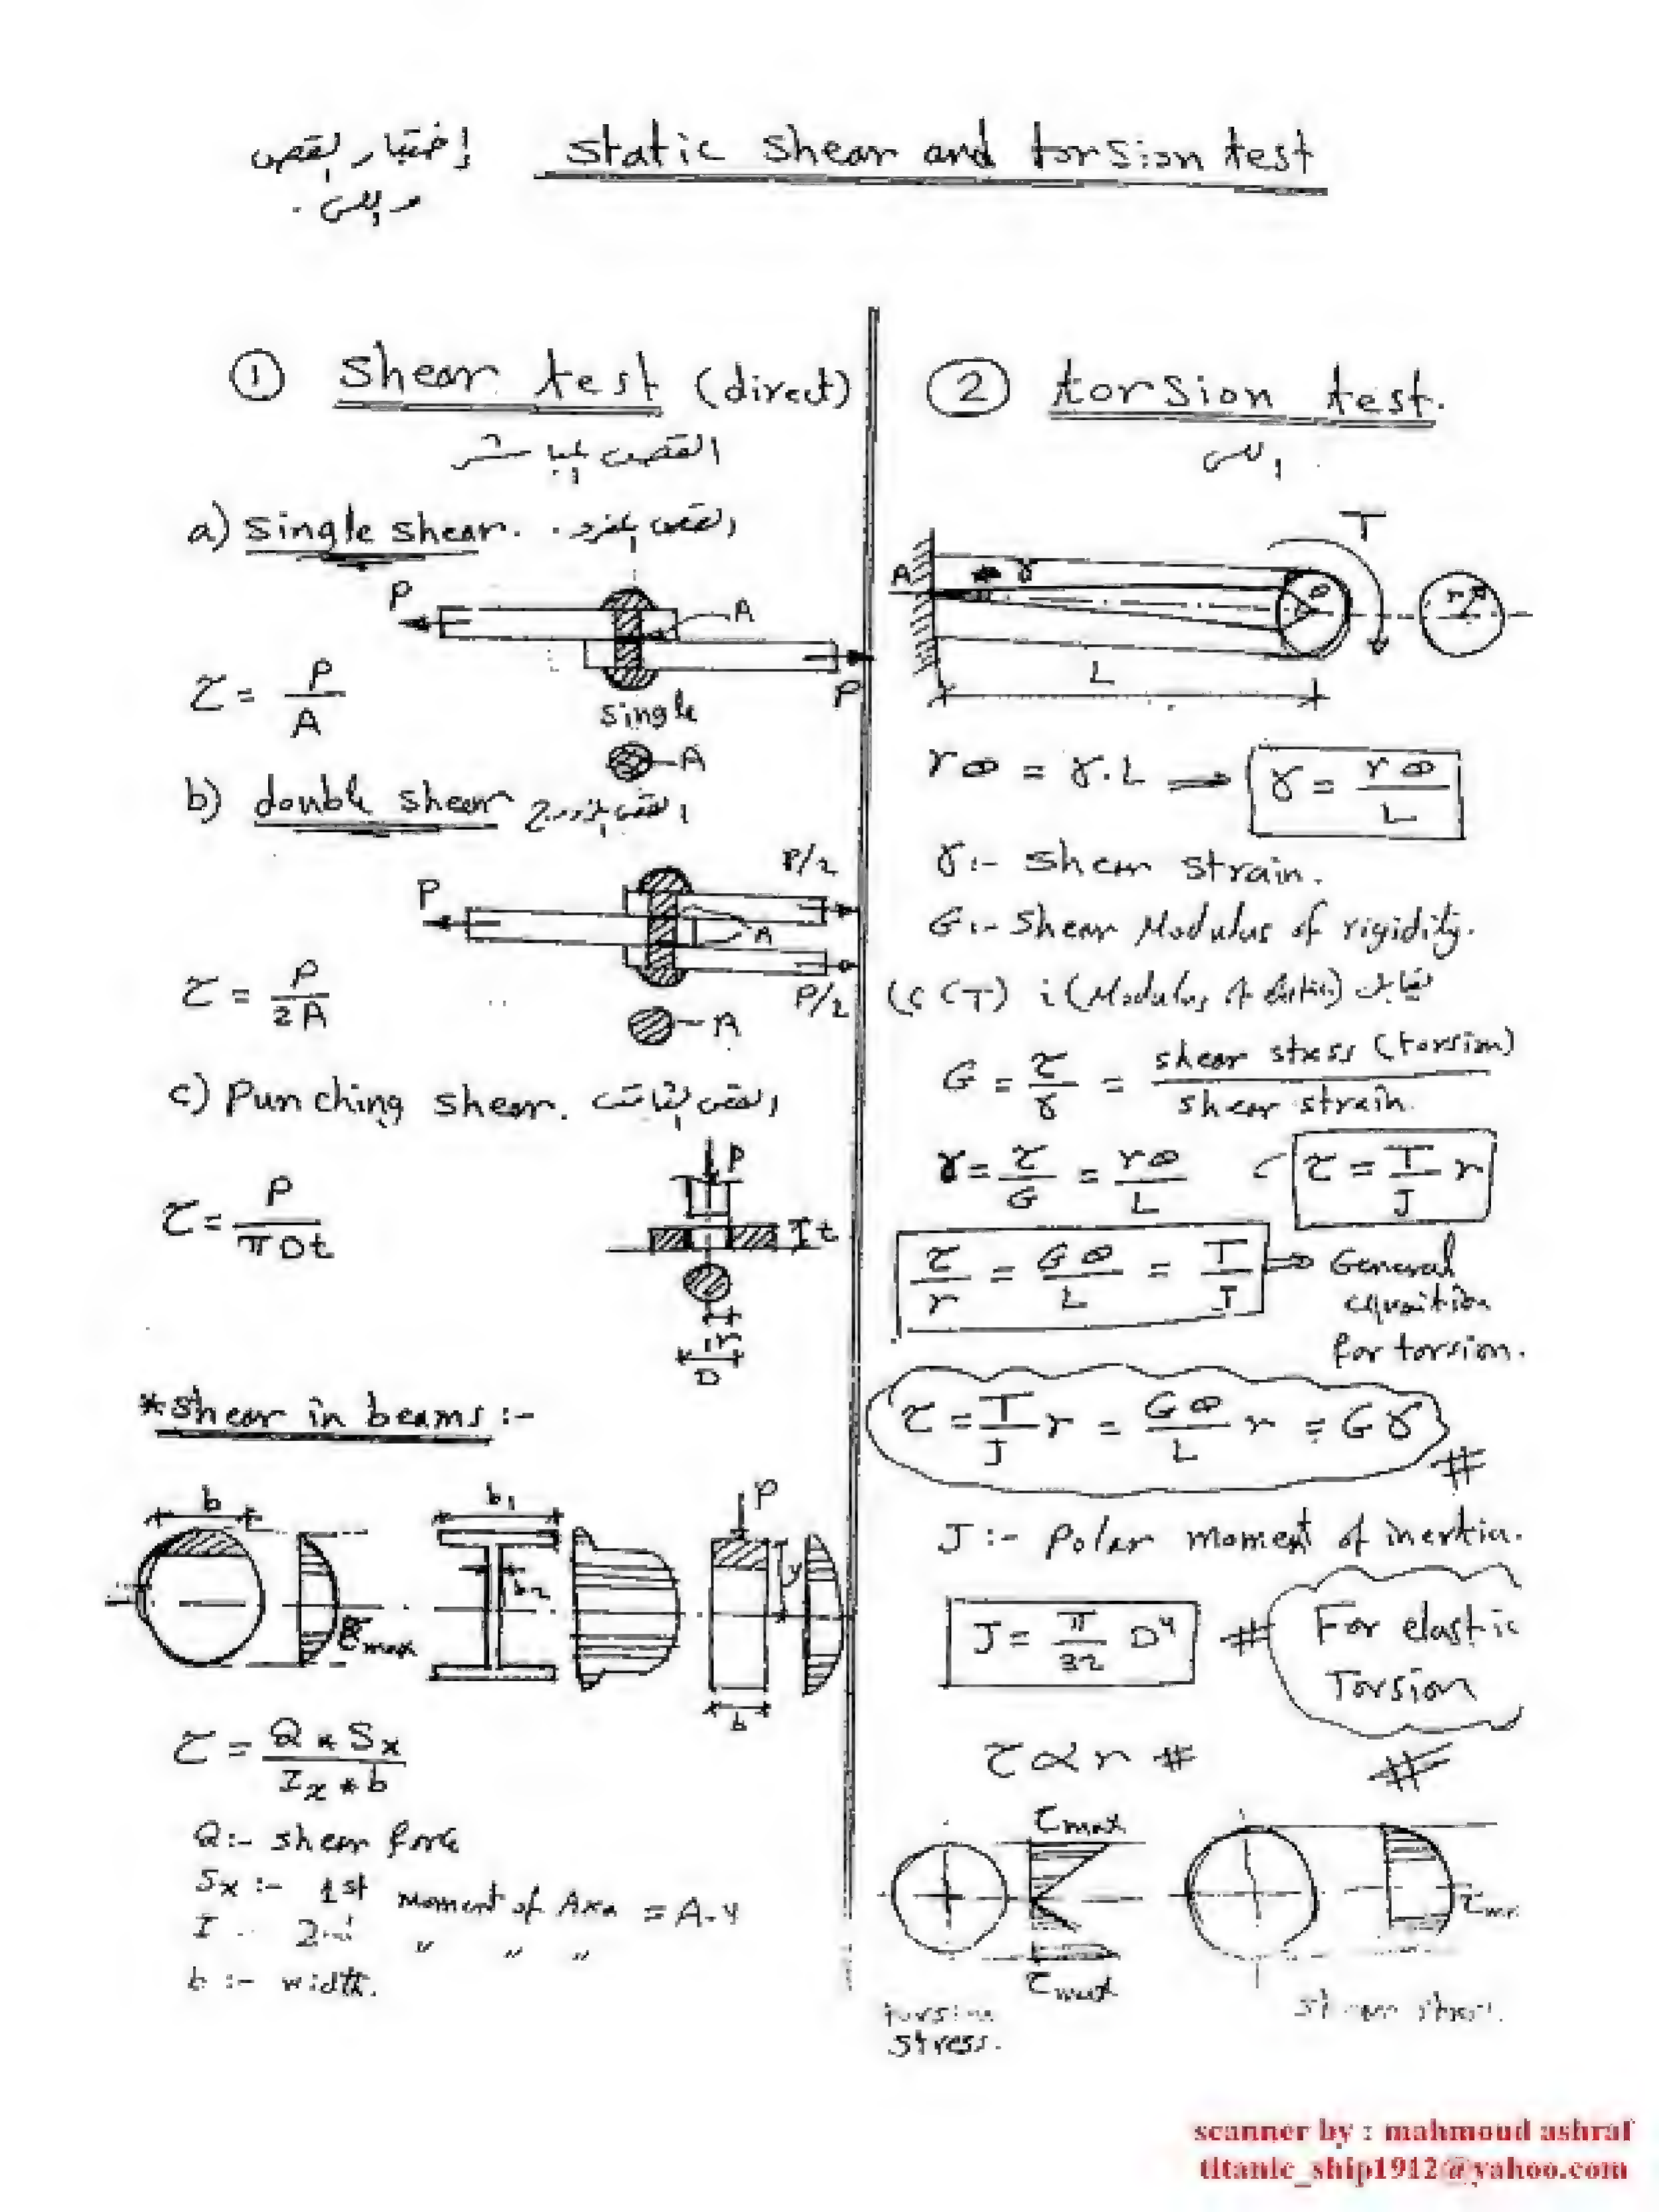 static shear and torsion test
إختبار القص
و اللى .
① shear test (direct)
القص المباشر
a) single shear. القص المفرد .
P
A
P
τ = P / A
single
A
b) double shear القص المزدوج
P/2
P
A
P/2
τ = P / 2A
A
c) Punching shear. القص الثاقب
P
t
τ = P / πDt
r
D
*shear in beams :-
b
τmax
b1
b2
P
y
b
τ = Q * Sx / Ix * b
Q :- shear force
Sx :- 1st Moment of Area = A.y
I 2nd " " "
b :- width.
② torsion test.
اللى
T
A
γ
θ
r
L
rθ = γ.L ⟹ γ = rθ / L
γ :- Shear strain.
G :- Shear Modulus of rigidity.
(Modulus of elastic)
G = τ / γ = shear stress (torsion) / shear strain.
γ = τ / G = rθ / L
τ = T / J r
τ / r = Gθ / L = T / J ⟹ General
equaition
for torsion.
τ = T / J r = Gθ / L r = Gγ #
J :- Polar moment of inertia.
J = π / 32 D⁴ #
For elastic
Torsion
#
τ α r #
τmax
τmax
torsion
stress.
τmax
shear stress.
scanner by : mahmoud ashraf
titanic_ship1912@yahoo.com